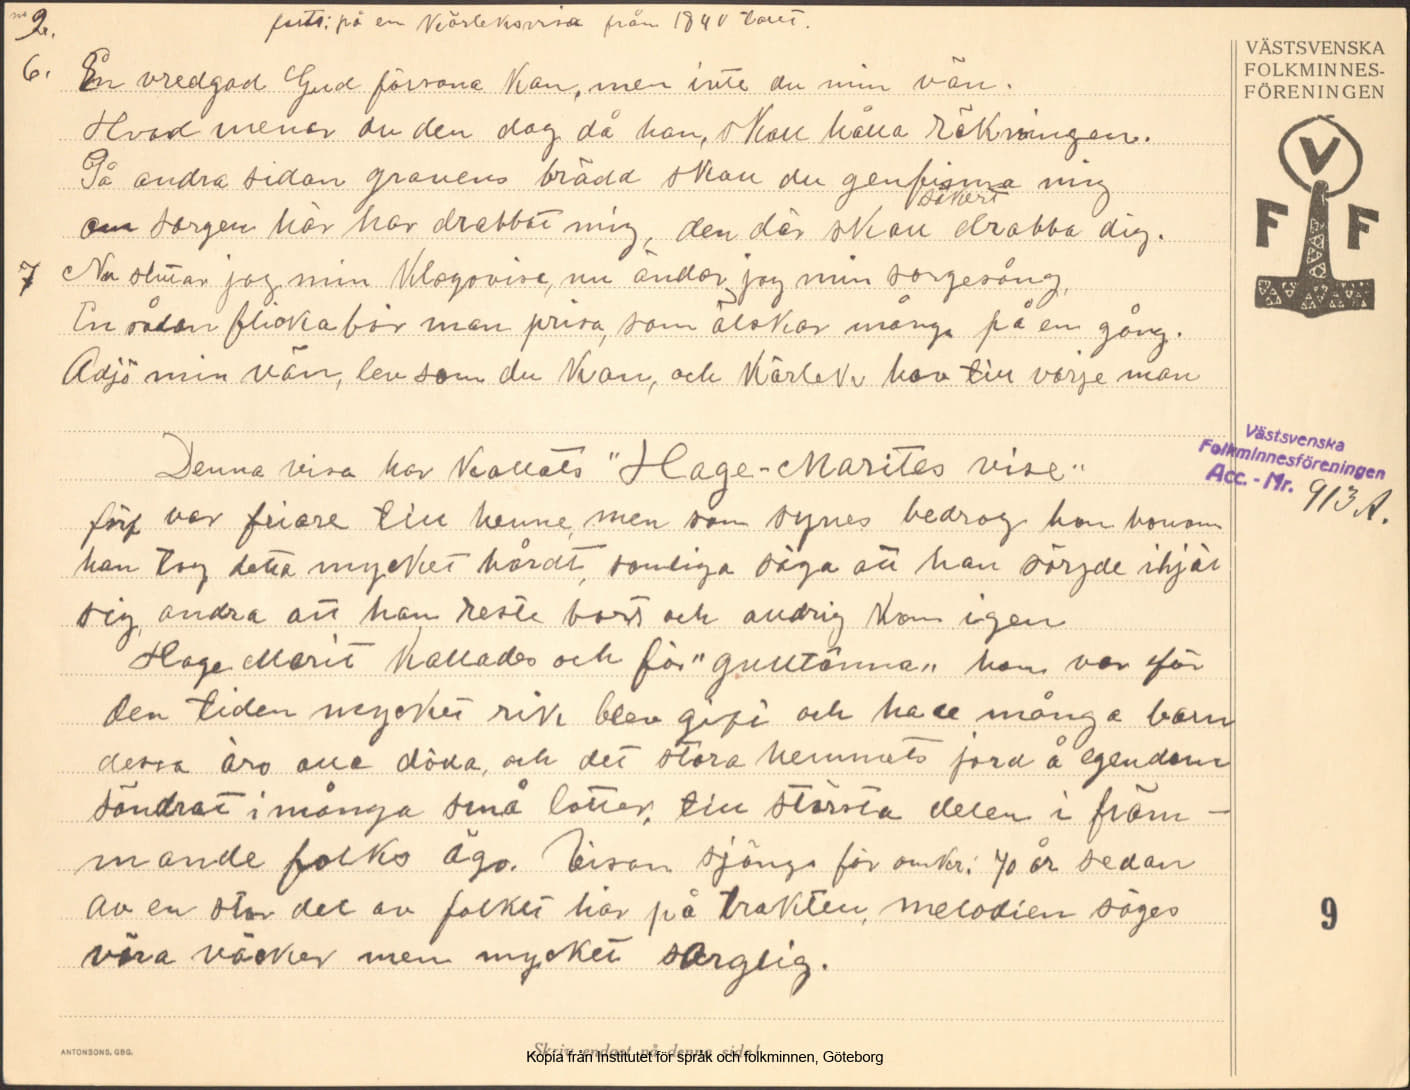 no 2. forts: på en Kärleksvisa från 1840 talet.
6. En vredgad Gud försona kan, men inte du min vän.
Hvad menar du den dag då han, skall hålla räkningen.
På andra sidan gravens brädd skall du genfinna mig
säkert
om sorgen här har drabbat mig, den där skall drabba dig.
7 Nu slutar jag min Klagovisa, nu ändar jag min sorgesång,
En sådan flicka bör man prisa, som älskar många på en gång.
Adjö min vän, lev som du kan, och Kärlek hav till varje man
Denna visa har kallats "Hage-Marites vise"
förf var friare till henne, men som synes bedrog hon honom
han tog detta mycket hårdt, somliga säga att han sörjde ihjäl
sig, andra att han reste bort och aldrig kom igen
Hage Marit kallades och för "gulltånna" hon var för
den tiden mycket rik blev gift och hade många barn
dessa äro alla döda, och det stora hemmets jord å egendom
söndrat i många små lotter, till största delen i främ-
mande folks ägo. Visan sjöngs för omkr: 70 år sedan
av en stor del av folket här på trakten, melodien säges
vara vacker men mycket sorglig.
VÄSTSVENSKA
FOLKMINNES-
FÖRENINGEN
V
F F
Västsvenska
Folkminnesföreningen
Acc.-Nr. 913 A.
9
ANTONSONS, GBG.
Skriv endast på denna sida!
Kopia från Institutet för språk och folkminnen, Göteborg